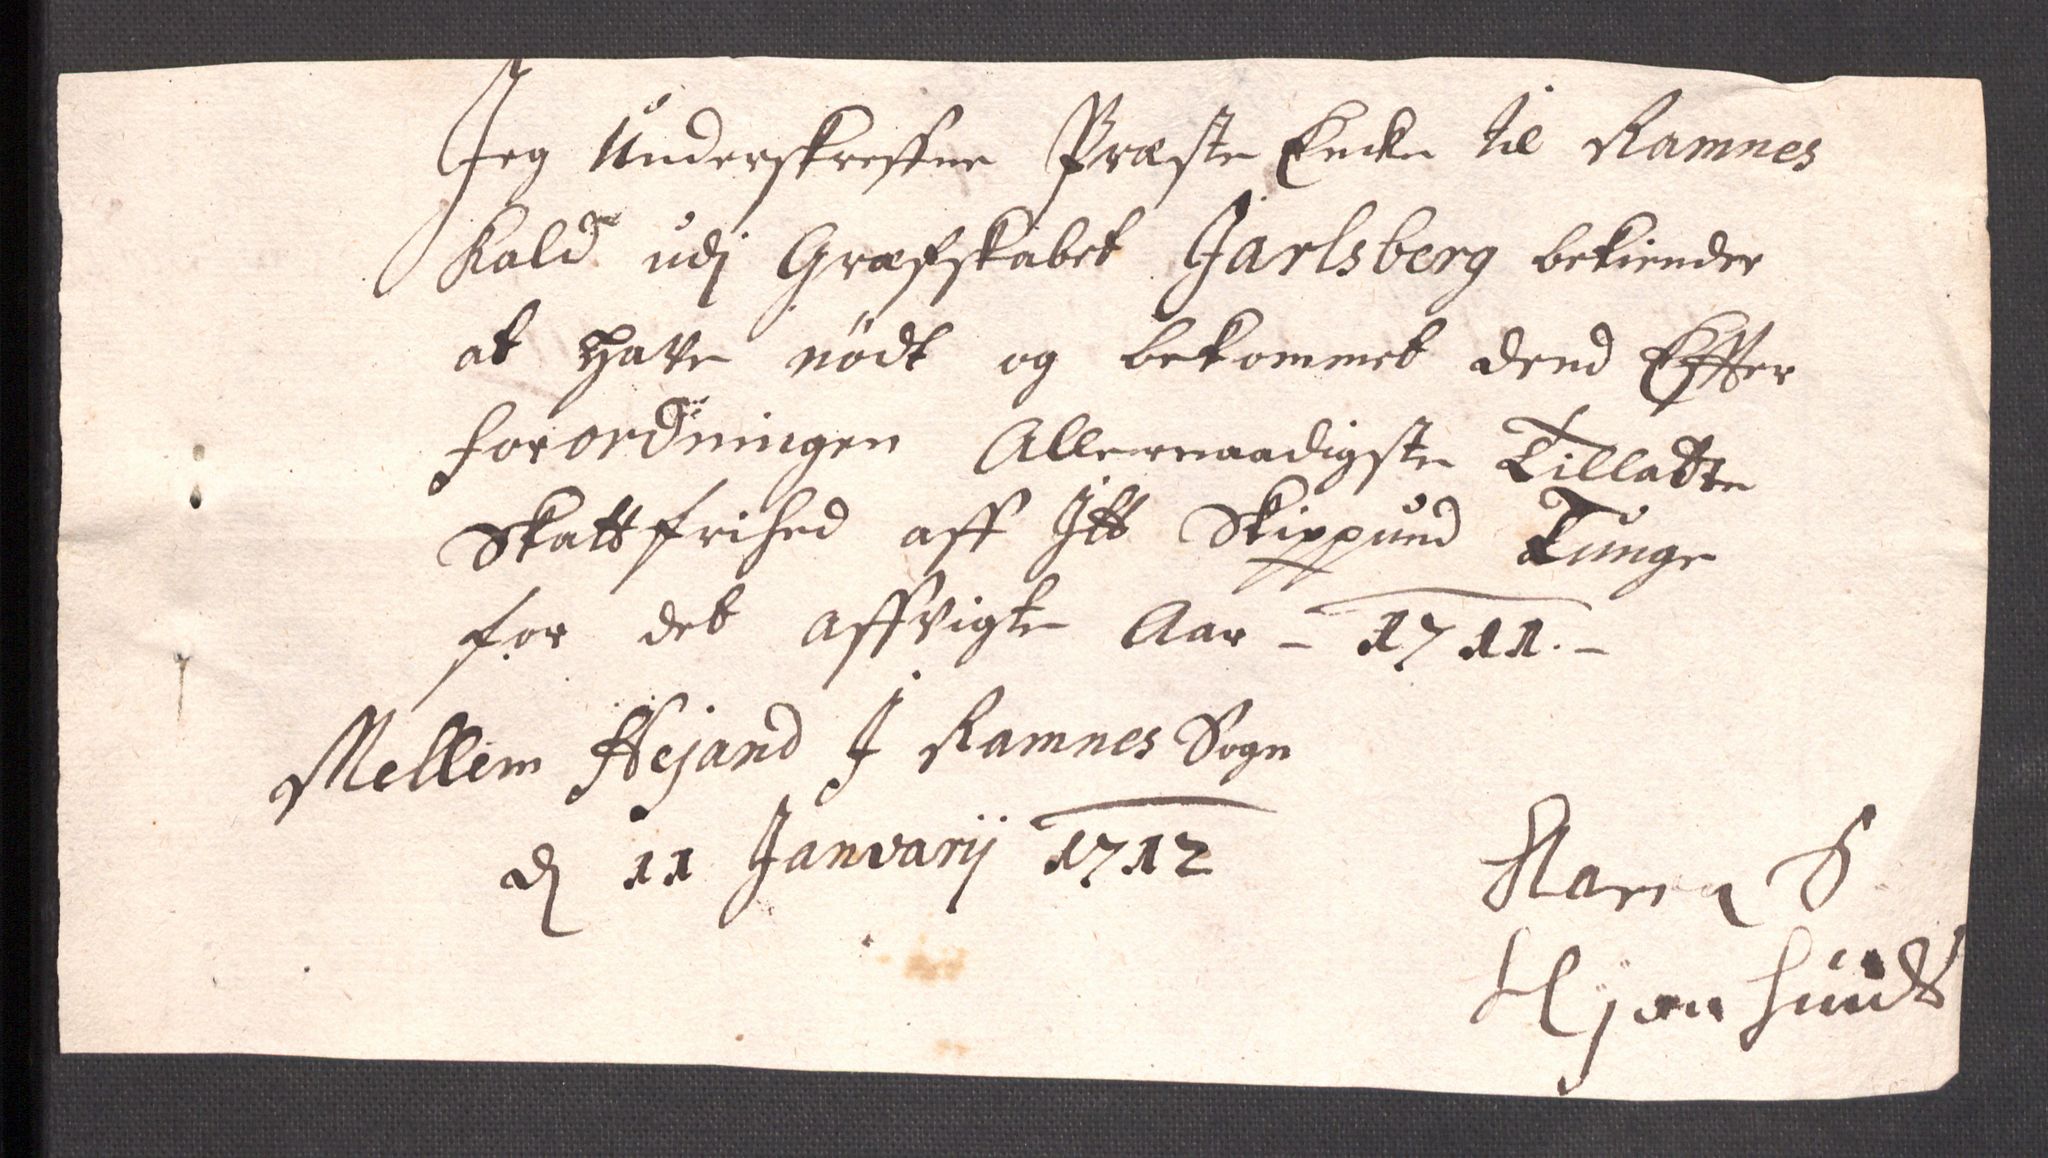 Jeg Underskrefne Præste Encke til Ramnes
Kald udj Græfskabet Jarlsberg bekiender
at Have nödt og bekommet dend Effter
forordningen Allernaadigste Tilladte
Skattfrihed aff Itt Skippund Tunge
for det affvigte Aar - 1711. -
Mellem Hejand J Ramnes Sogn
dj 11 Janvarij 1712
Karen S